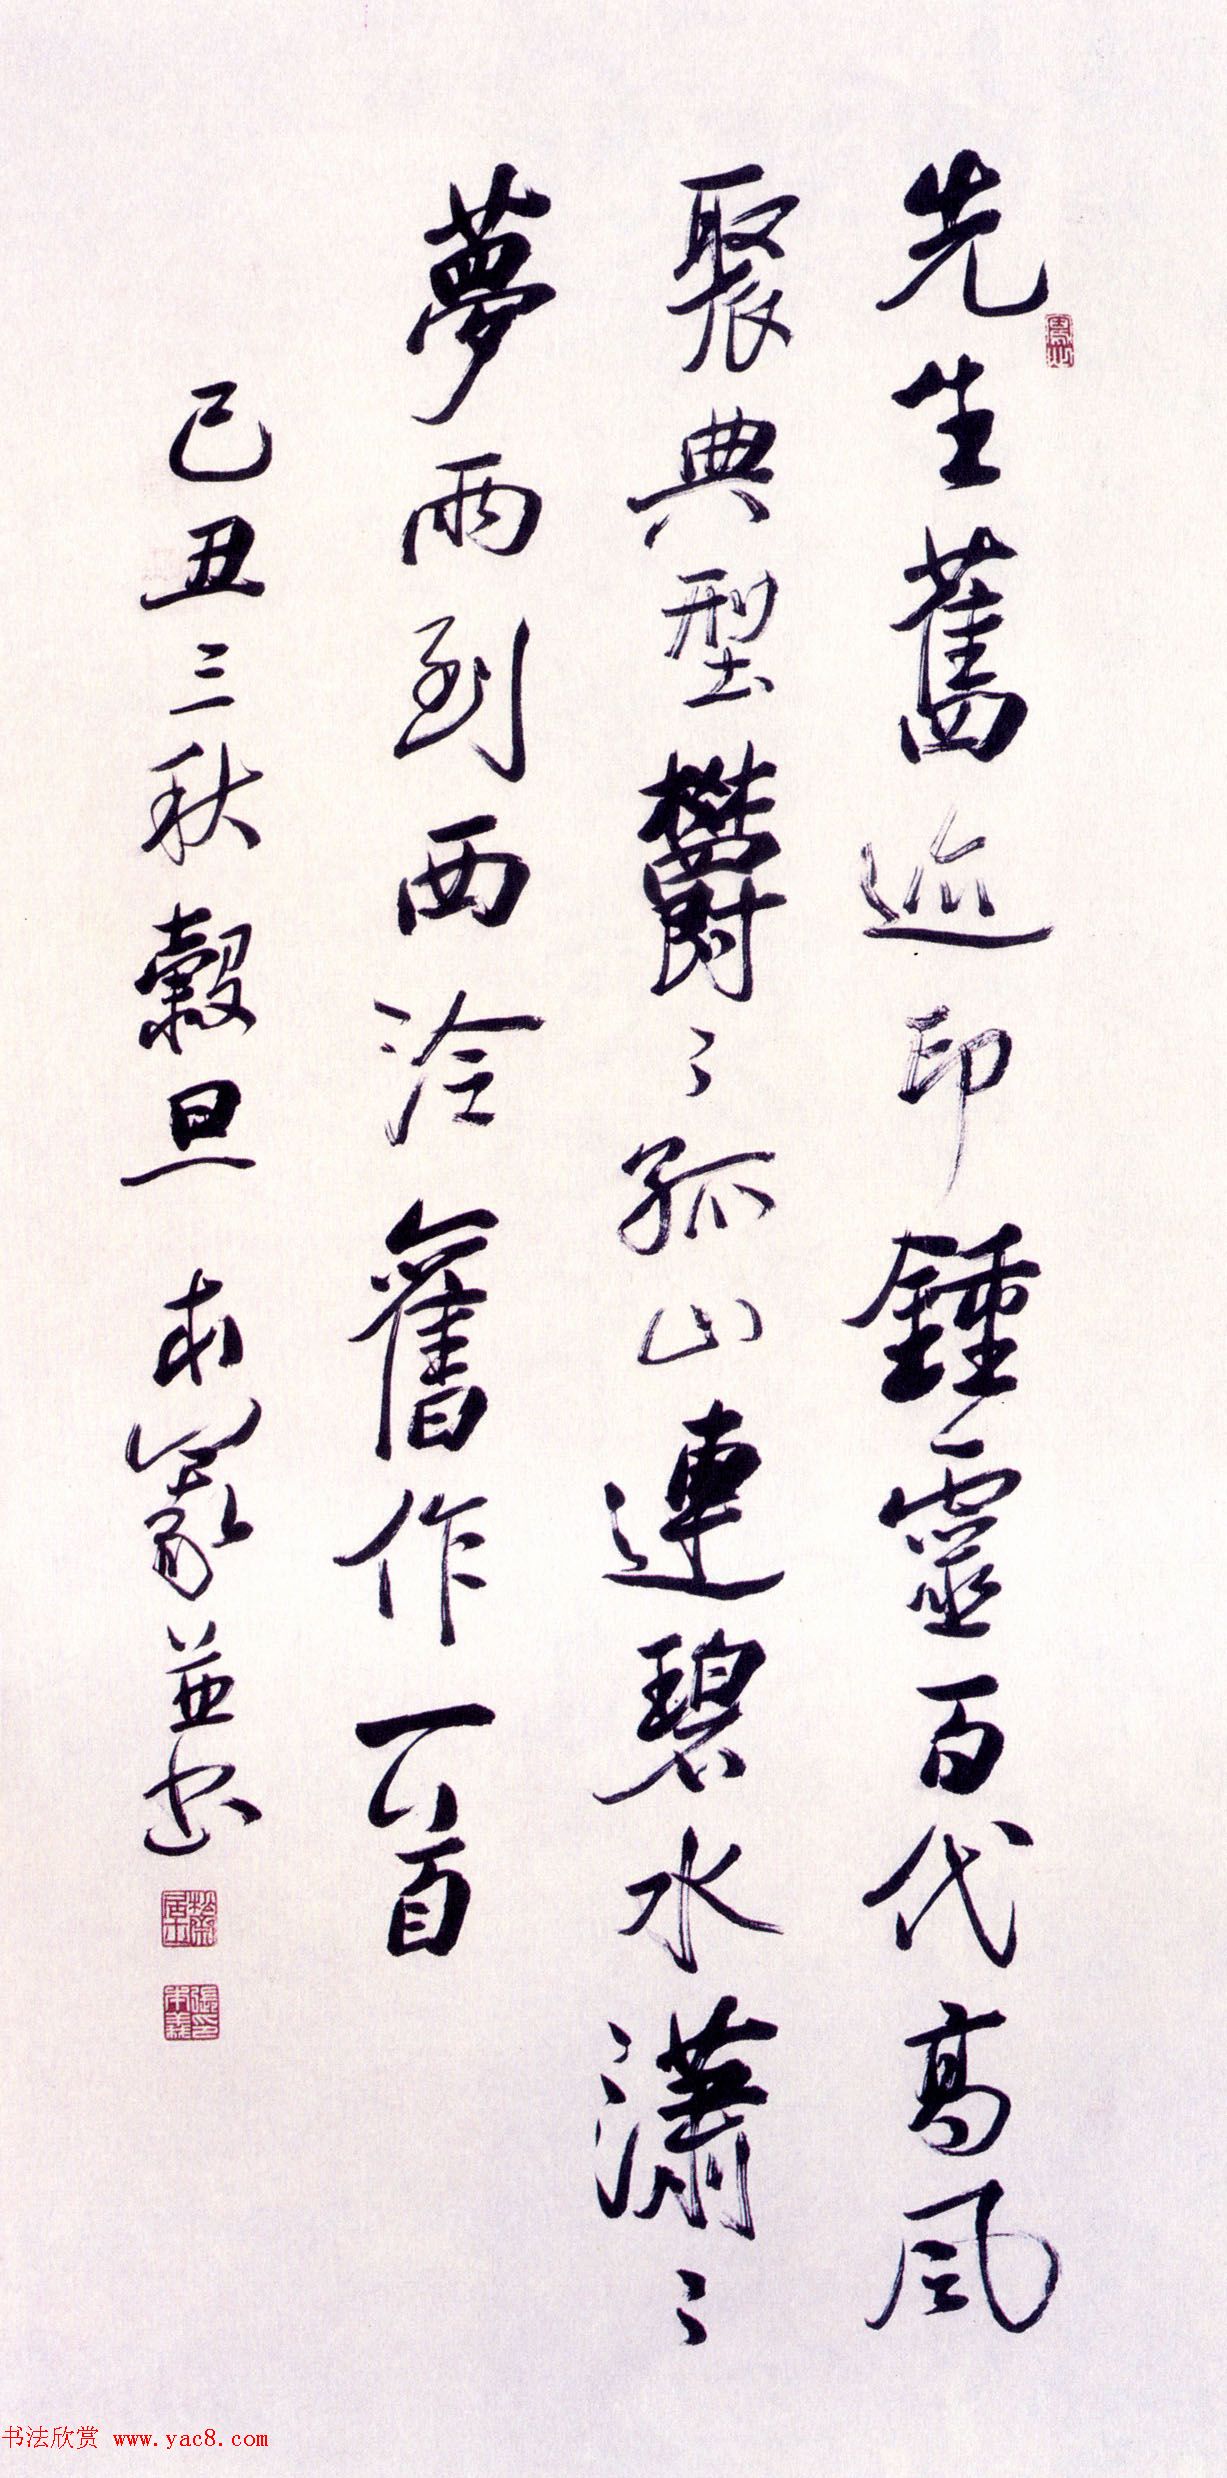 先生舊迹印鍾靈百代高風
聚典型鬱〻孤山連碧水瀟〻
夢雨到西泠舊作一首
己丑三秋穀旦本義並書
书法欣赏 www.yac8.com